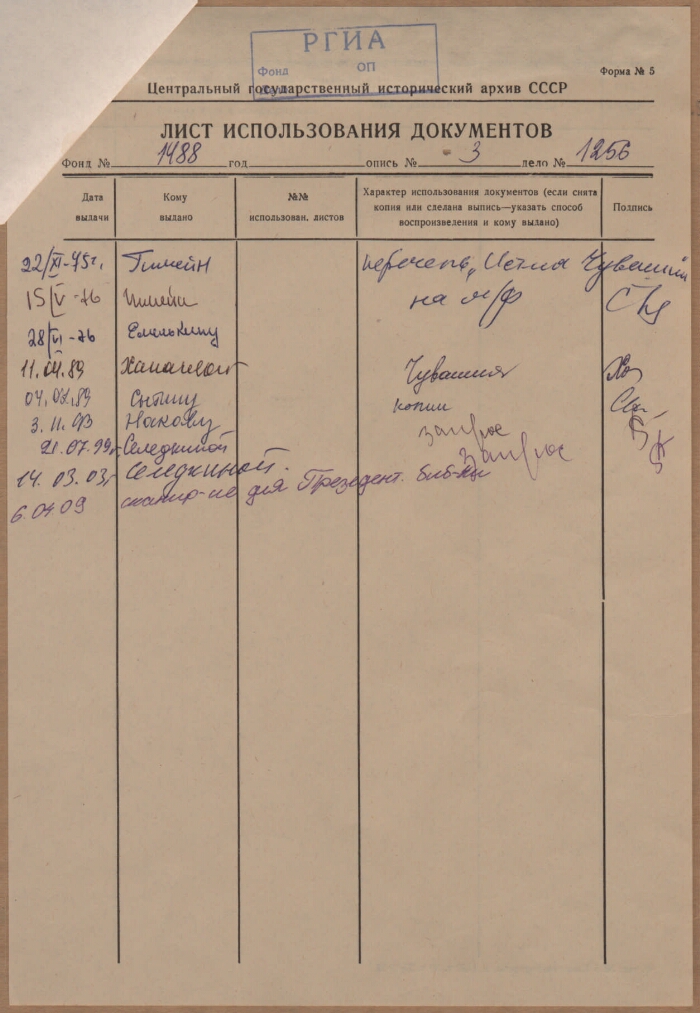 РГИА
Фонд оп
Форма № 5
Центральный государственный исторический архив СССР
ЛИСТ ИСПОЛЬЗОВАНИЯ ДОКУМЕНТОВ
Фонд № 1488 год опись № 3 дело № 1256
Дата выдачи
Кому выдано
№№ использован. листов
Характер использования документов (если снята
копия или сделана выпись—указать способ
воспроизведения и кому выдано)
Подпись
22/XI-75г.
15/V-76 на м/ф
28/VI-76 Емелькину
11.04.89 Чувашия
копии
3.11.93 Накову запрос
21.07.99г. Селедкиной запрос
14.03.03г Селедкиной.
6.04.09 сканир-ие для Президент. биб-ки